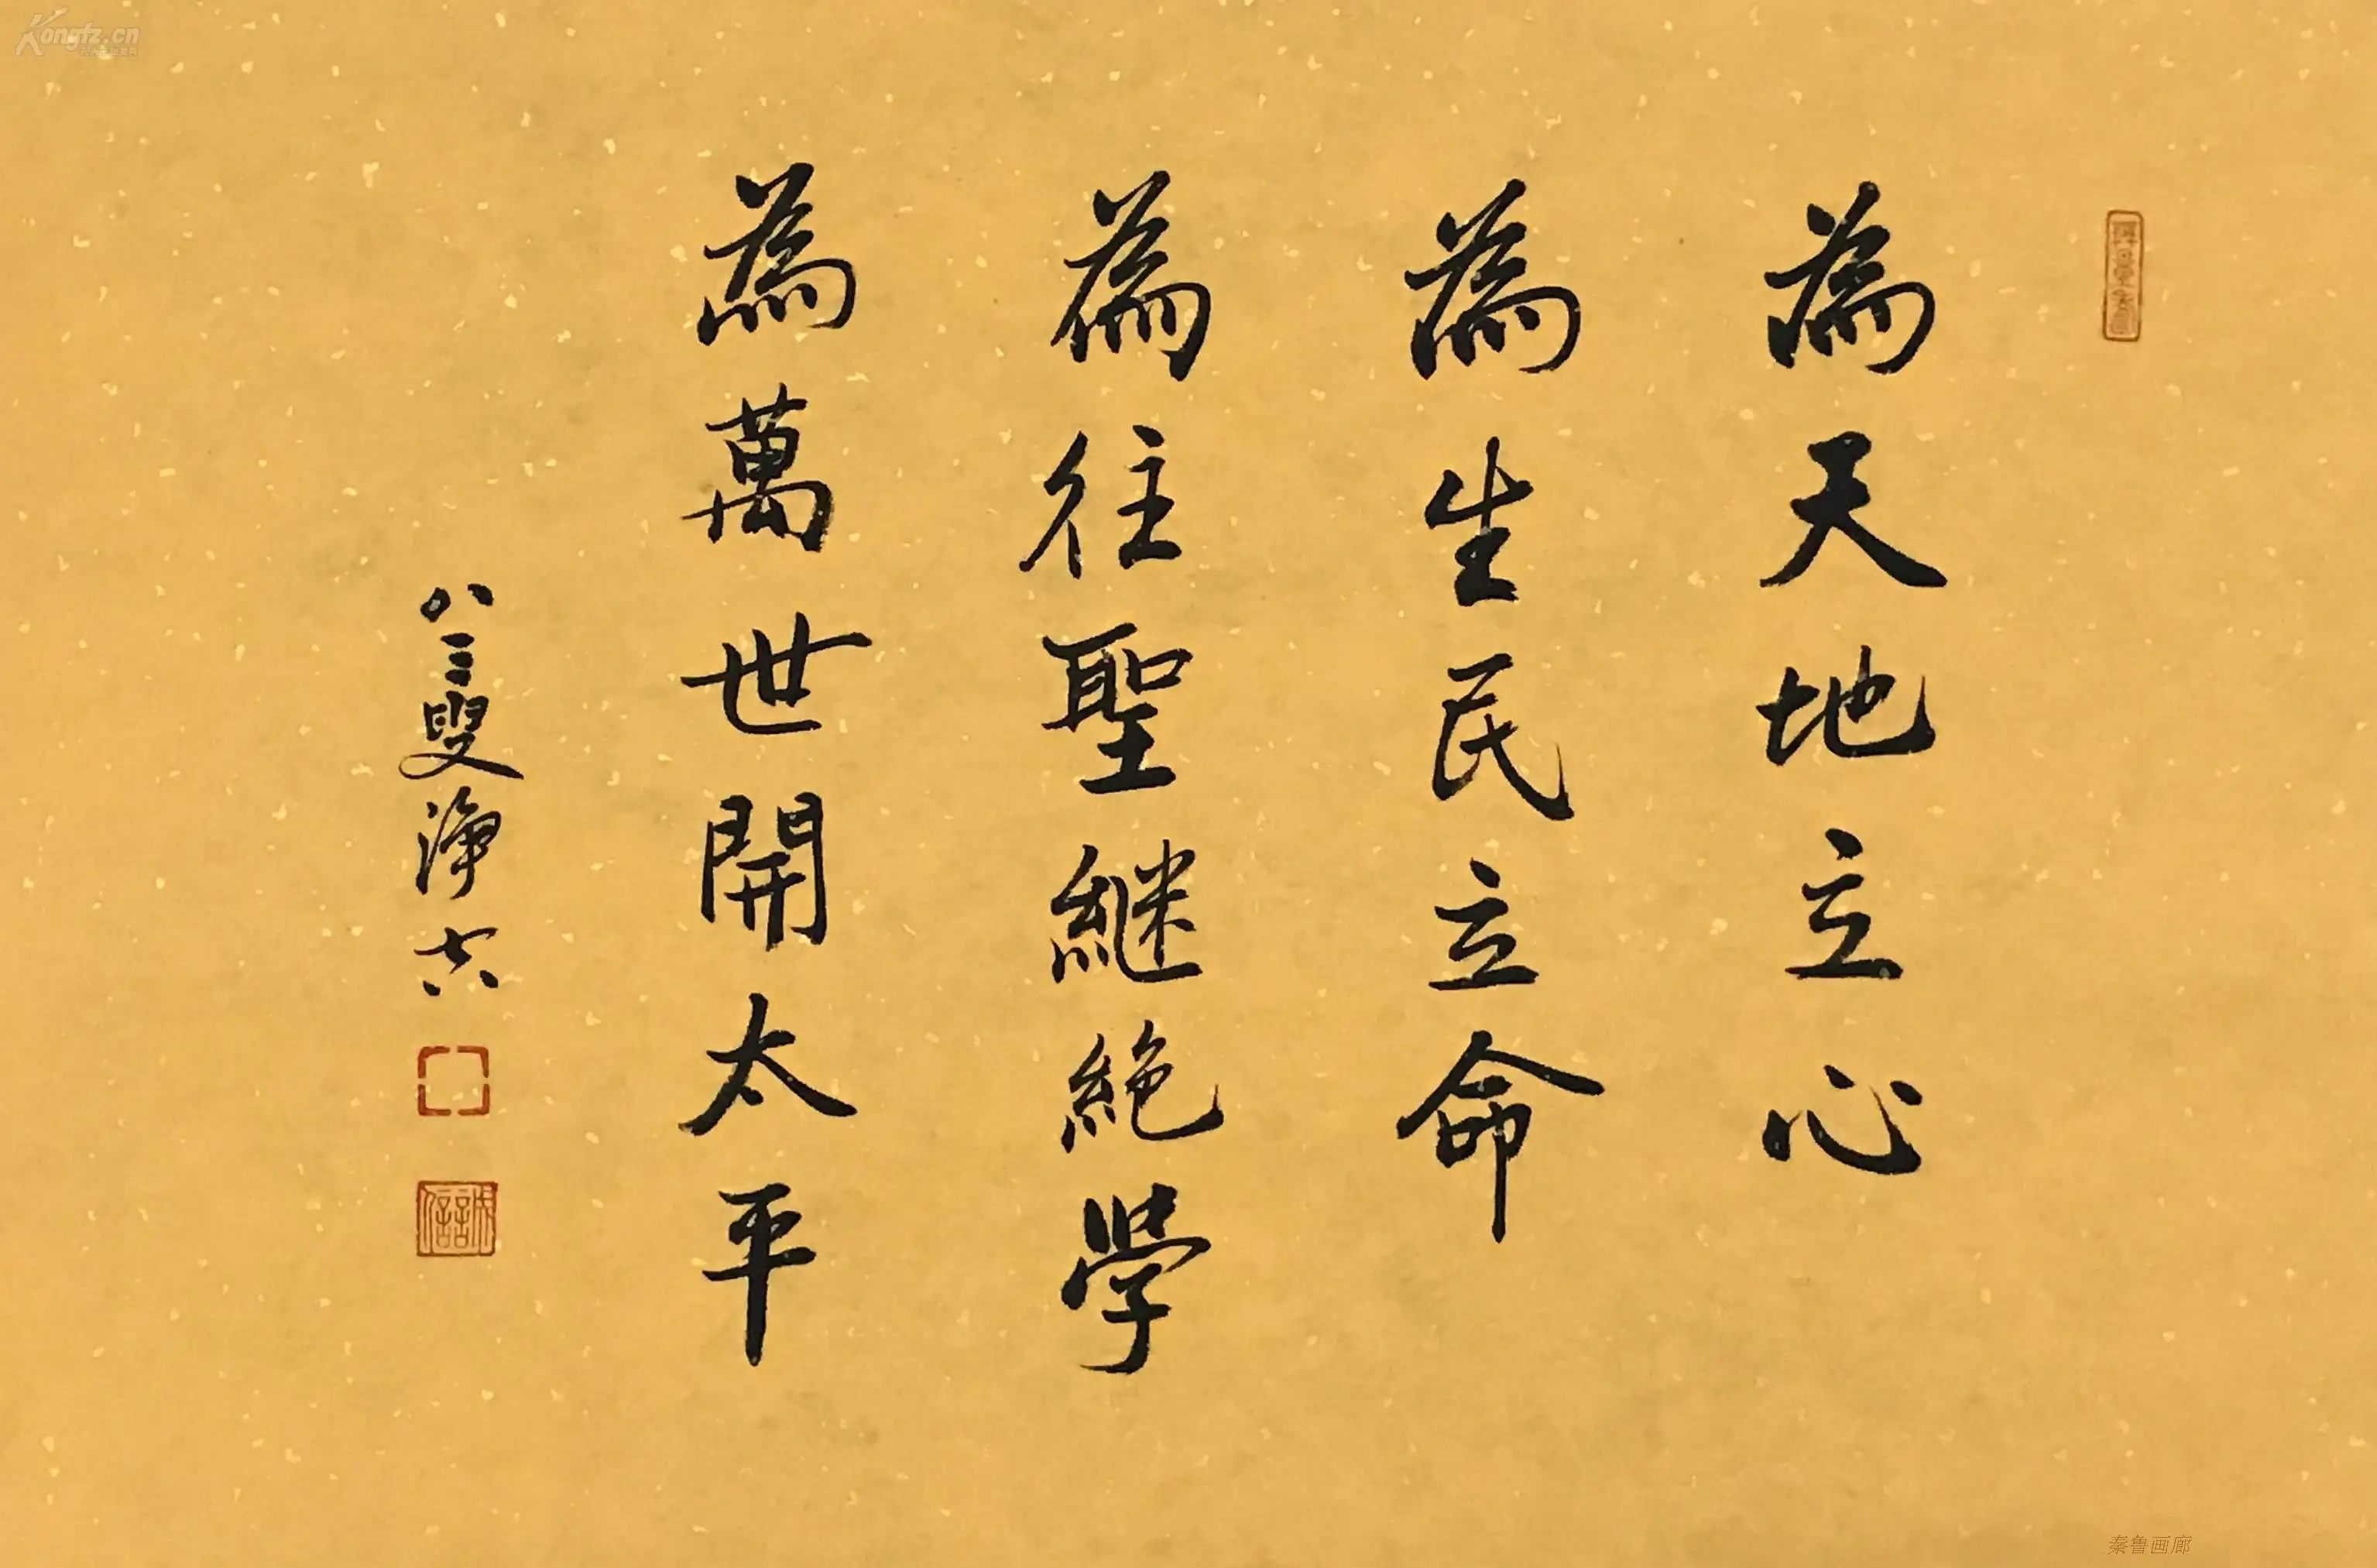 為天地立心
為生民立命
為往聖繼絶學
為萬世開太平
八三叟淨六
Kongfz.cn
秦鲁画廊